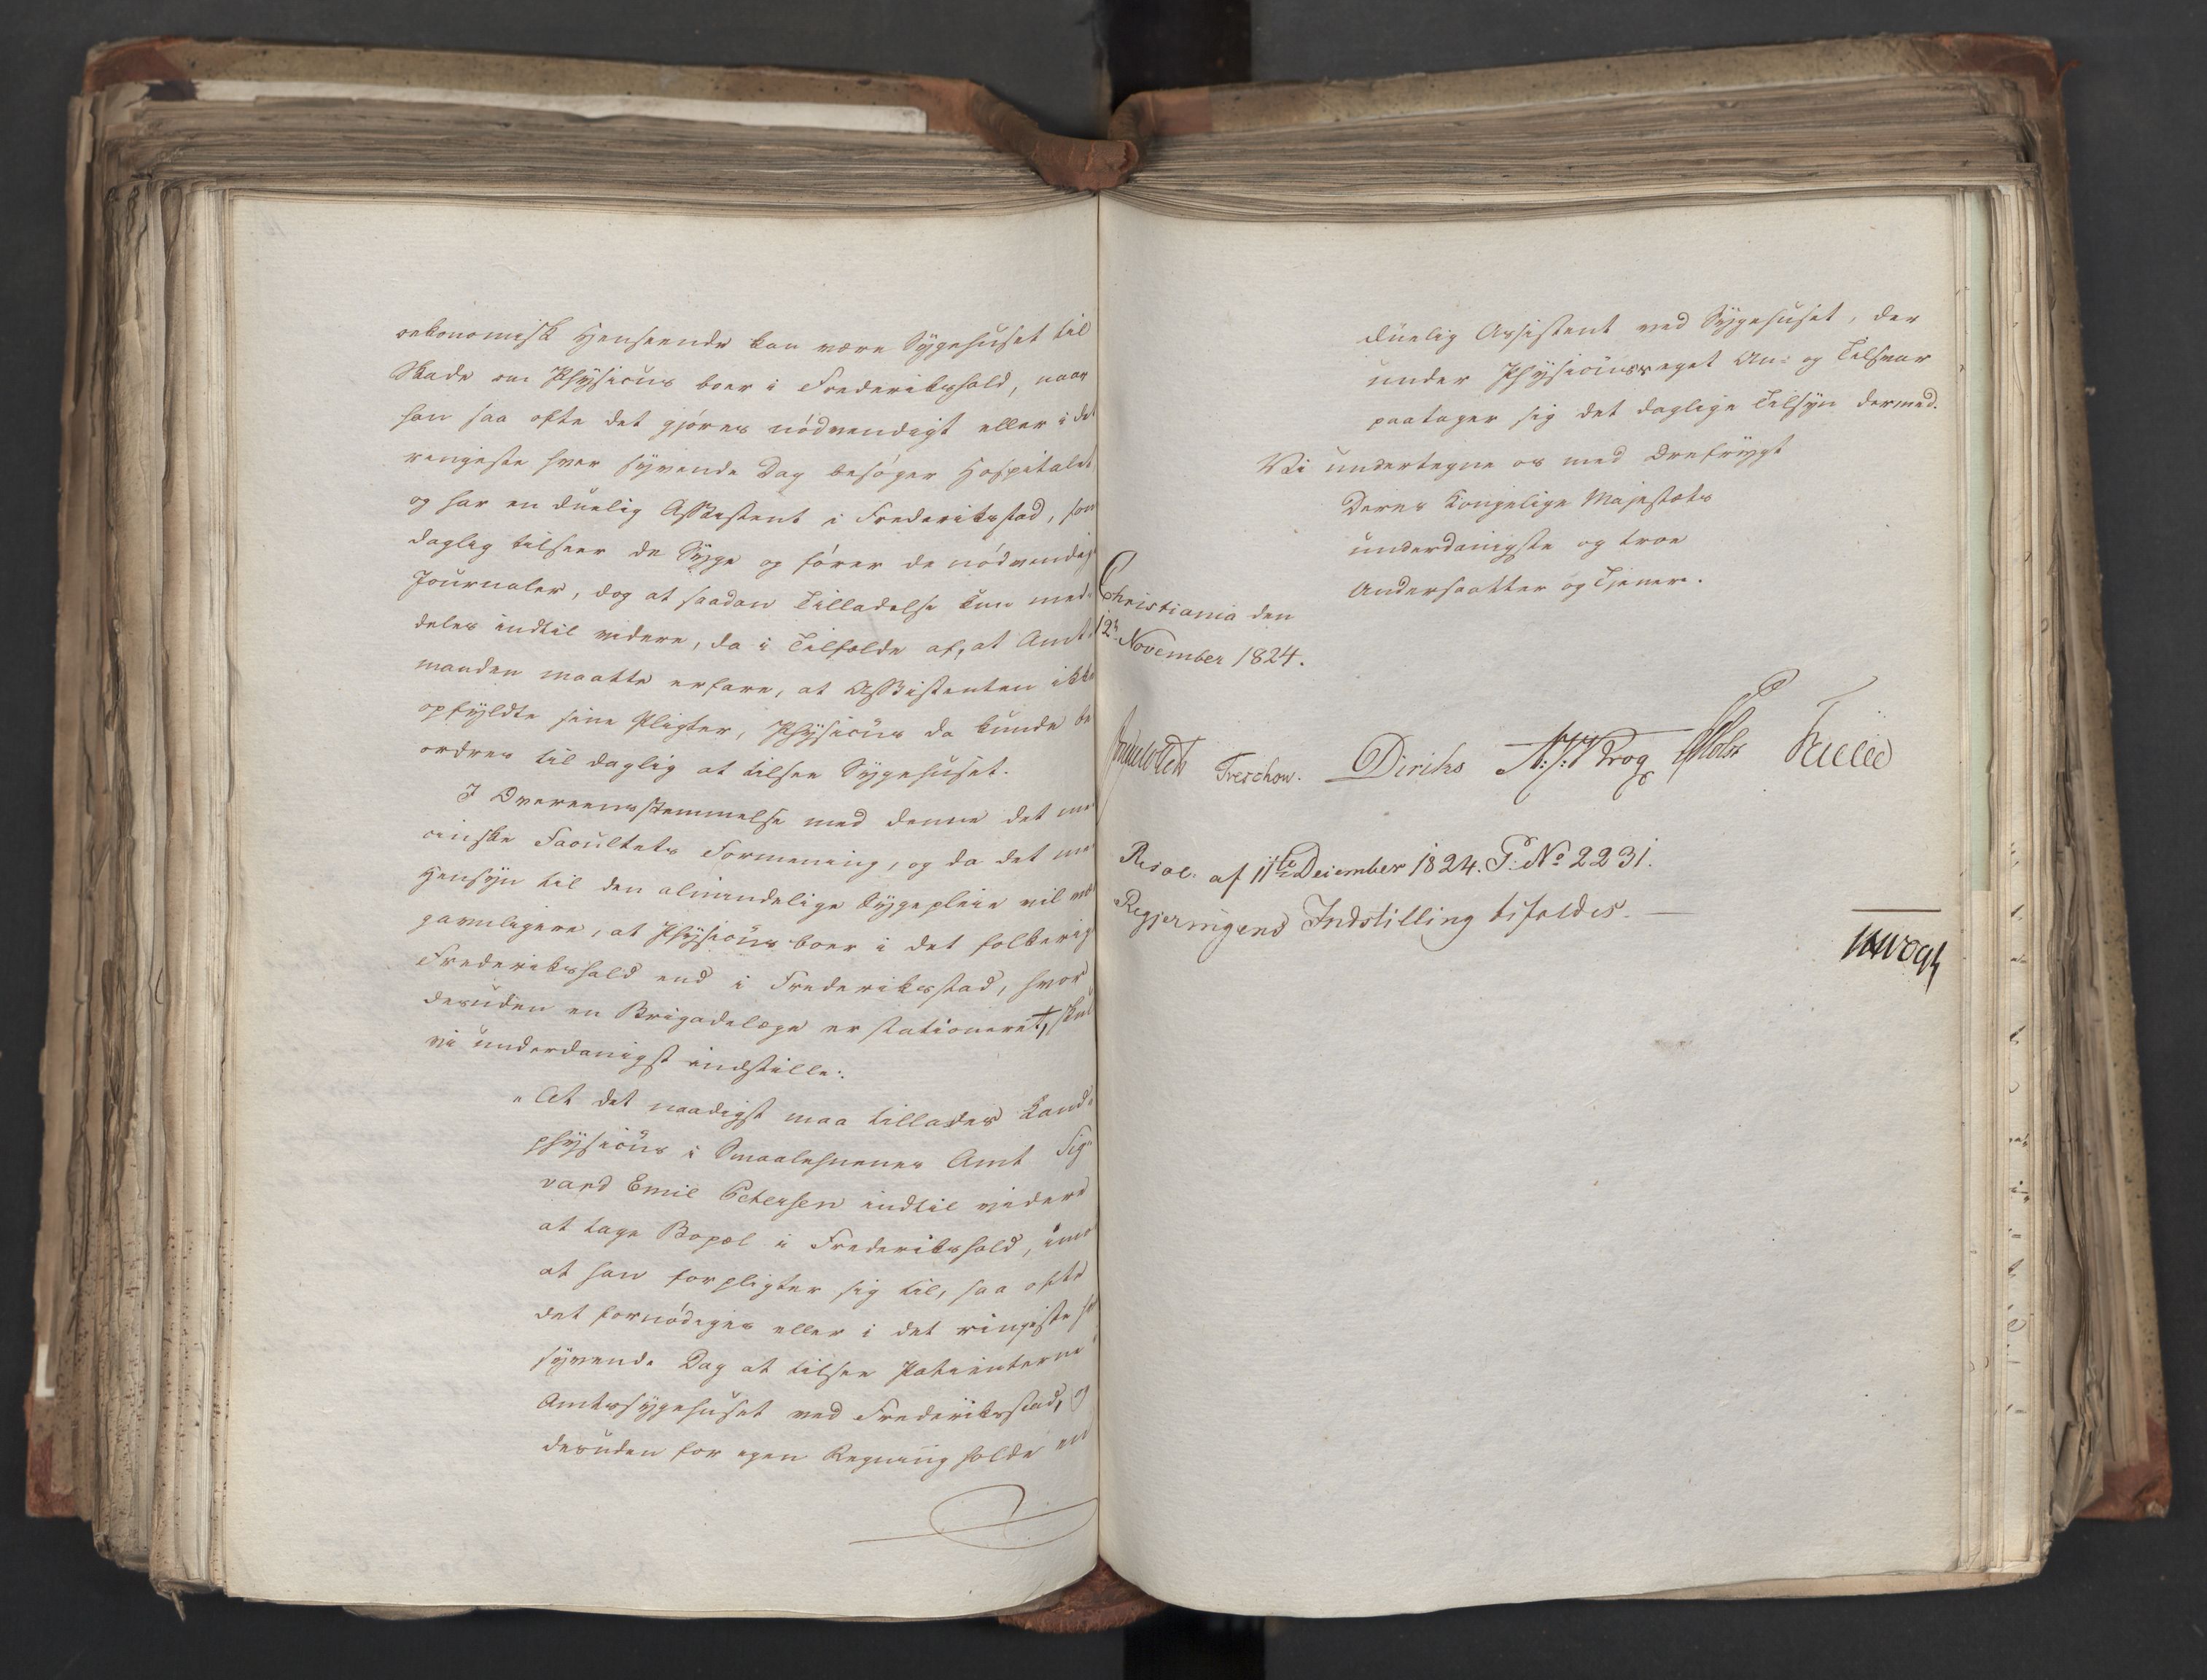 oekonomisk Henseende kan være Sygehuset til
Skade om Physicus boer i Frederikshald, naar
han saa ofte det gjøres nödvendigt eller i det
ringeste hver syvende Dag besöger Hospitalet
og har en duelig Assistent i Frederiksstad, som
daglig tilseer de Syge og förer de nödvendige
Journaler, dog at saadan Tilladelse kun med-
deles indtil videre, da i Tilfælde af, at Amt-
manden maatte erfare, at Assistenten ikke
opfyldte sine Pligter, Physicus da kunde be
ordres til daglig at tilsee Sygehuset.
I Overeensstemmelse med denne det me
cinske Facultets Formening, og da det med
Hensyn til den almindelige Sygepleie vil være
gavnligere, at Physicus boer i det folkerige
Frederikshald end i Frederiksstad, hvor
desuden en Brigadelæge er stationeret, skulle
vi underdanigst indstille:
"At det naadigst maa tillades Land-
physicus i Smaalehnenes Amt Sig-
vard Emil Petersen indtil videre
at tage Bopæl i Frederikshald, imod
at han forpligter sig til, saa ofte
det fornödiges eller i det ringeste hver
syvende Dag at tilsee Patienterne i
Amtssygehuset ved Frederiksstad, og
desuden for egen Regning holde en
duelig Assistent ved Sygehuset, der
under Physicusseget An- og Tilsvar
paatager sig det daglige Tilsyn dermed.
Vi undertegne os med Ærefrygt
Deres Kongelige Majestæts
underdanigste og troe
Undersaatter og Tjenere.
Christiania den
12te November 1824.
Treschow. Diriks Krog Holst Fasting
Resol. af 11te December 1824. P. No 2231.
Regjeringens Indstilling bifaldes.
Vogt